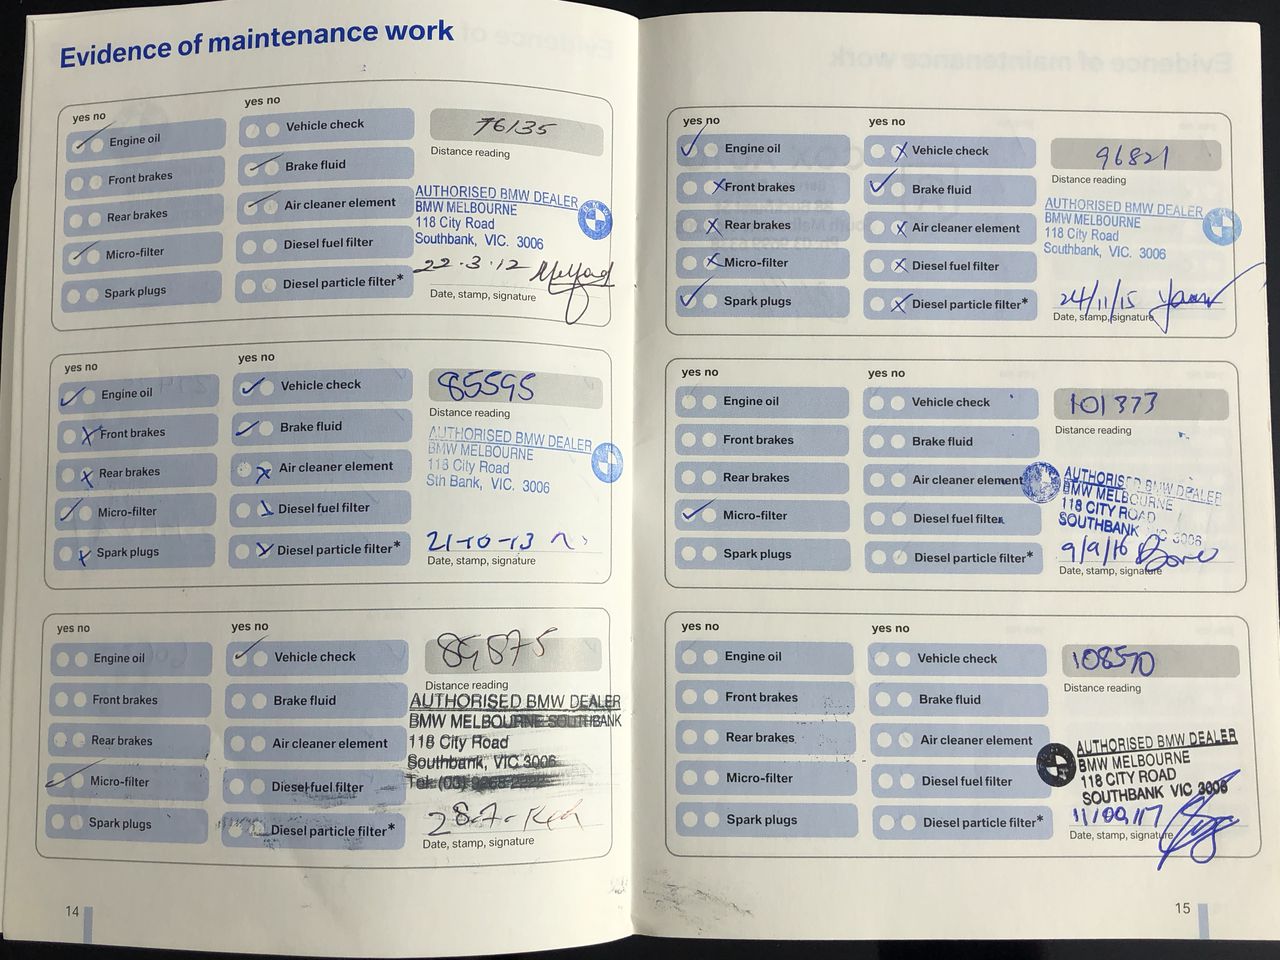 Evidence of maintenance work
yes no
yes no
76135
Engine oil
Vehicle check
Distance reading
Front brakes
Brake fluid
Rear brakes
Air cleaner element
AUTHORISED BMW DEALER
BMW MELBOURNE
118 City Road
Southbank, VIC. 3006
Micro-filter
Diesel fuel filter
Spark plugs
Diesel particle filter*
22.3.12
Date, stamp, signature
yes no
yes no
85595
Engine oil
Vehicle check
Distance reading
Front brakes
Brake fluid
Rear brakes
Air cleaner element
AUTHORISED BMW DEALER
BMW MELBOURNE
118 City Road
Sth Bank, VIC. 3006
Micro-filter
Diesel fuel filter
Spark plugs
Diesel particle filter*
21-10-13
Date, stamp, signature
yes no
yes no
89875
Engine oil
Vehicle check
Distance reading
Front brakes
Brake fluid
Rear brakes
Air cleaner element
AUTHORISED BMW DEALER
BMW MELBOURNE SOUTHBANK
118 City Road
Southbank, VIC 3006
Micro-filter
Diesel fuel filter
Spark plugs
Diesel particle filter*
Date, stamp, signature
14
yes no
yes no
96821
Engine oil
Vehicle check
Distance reading
Front brakes
Brake fluid
Rear brakes
Air cleaner element
AUTHORISED BMW DEALER
BMW MELBOURNE
118 City Road
Southbank, VIC. 3006
Micro-filter
Diesel fuel filter
Spark plugs
Diesel particle filter*
24/11/15
Date, stamp, signature
yes no
yes no
101373
Engine oil
Vehicle check
Distance reading
Front brakes
Brake fluid
Rear brakes
Air cleaner element
AUTHORISED BMW DEALER
BMW MELBOURNE
118 CITY ROAD
SOUTHBANK VIC 3006
Micro-filter
Diesel fuel filter
Spark plugs
Diesel particle filter*
9/9/16
Date, stamp, signature
yes no
yes no
108570
Engine oil
Vehicle check
Distance reading
Front brakes
Brake fluid
Rear brakes
Air cleaner element
AUTHORISED BMW DEALER
BMW MELBOURNE
118 CITY ROAD
SOUTHBANK VIC 3006
Micro-filter
Diesel fuel filter
Spark plugs
Diesel particle filter*
11/09/17
Date, stamp, signature
15